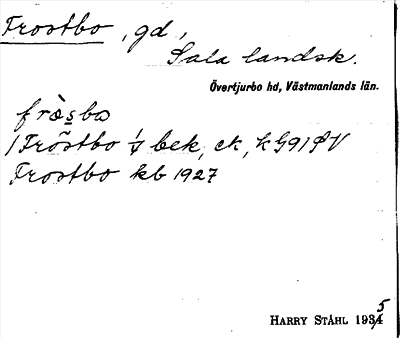 Frostbo, gd,
Sala landsk.
Övertjurbo hd, Västmanlands län.
fròsbo
Frostbo bek, ck, kG91
Frostbo kb 1927
HARRY STÅHL 1935